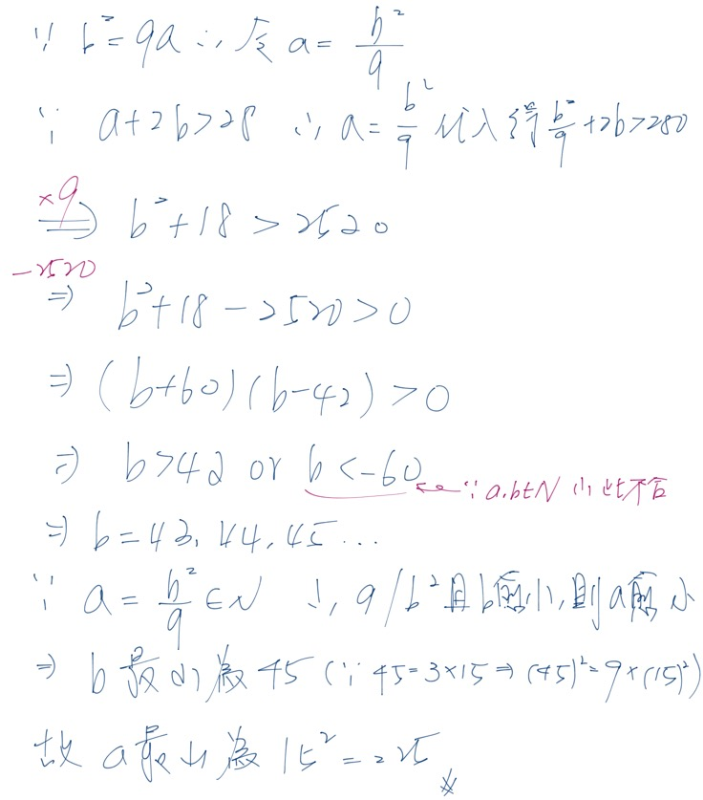 ∵ b²=9a ∴ 令 a= b²/9
∵ a+2b>28 ∴ a= b²/9 代入得 b²/9 +2b>280
×9
⇒ b²+18 > 2520
-2520
⇒ b²+18-2520>0
⇒ (b+60)(b-42)>0
⇒ b>42 or b<-60 ←∵a,b∈N ∴此不合
⇒ b=43, 44, 45...
∵ a= b²/9 ∈N ∴ 9/b² 且b愈小,則a愈小
⇒ b最小為45 (∵ 45=3×15⇒(45)²=9×(15)²)
故 a最小為 15²=225